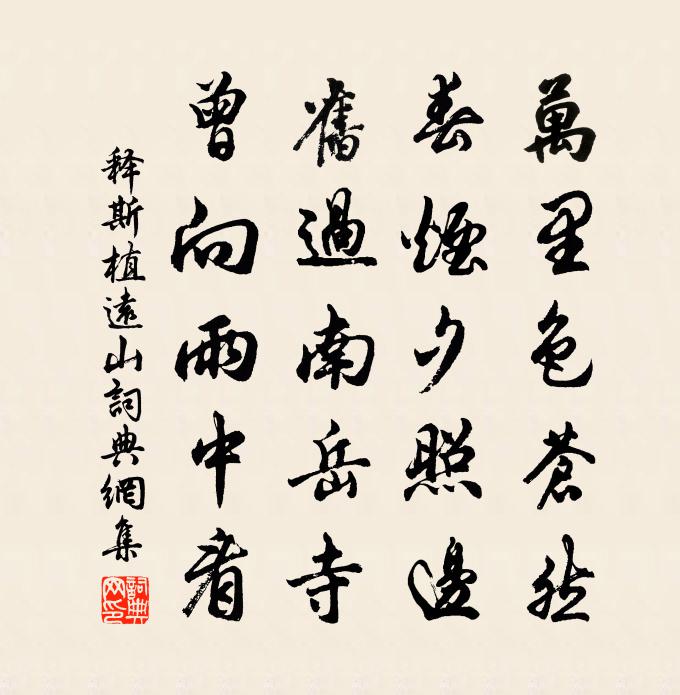 萬里色蒼然
春煙夕照邊
舊過南岳寺
曾向雨中看
释斯植遠山詞典網集
詞典網印